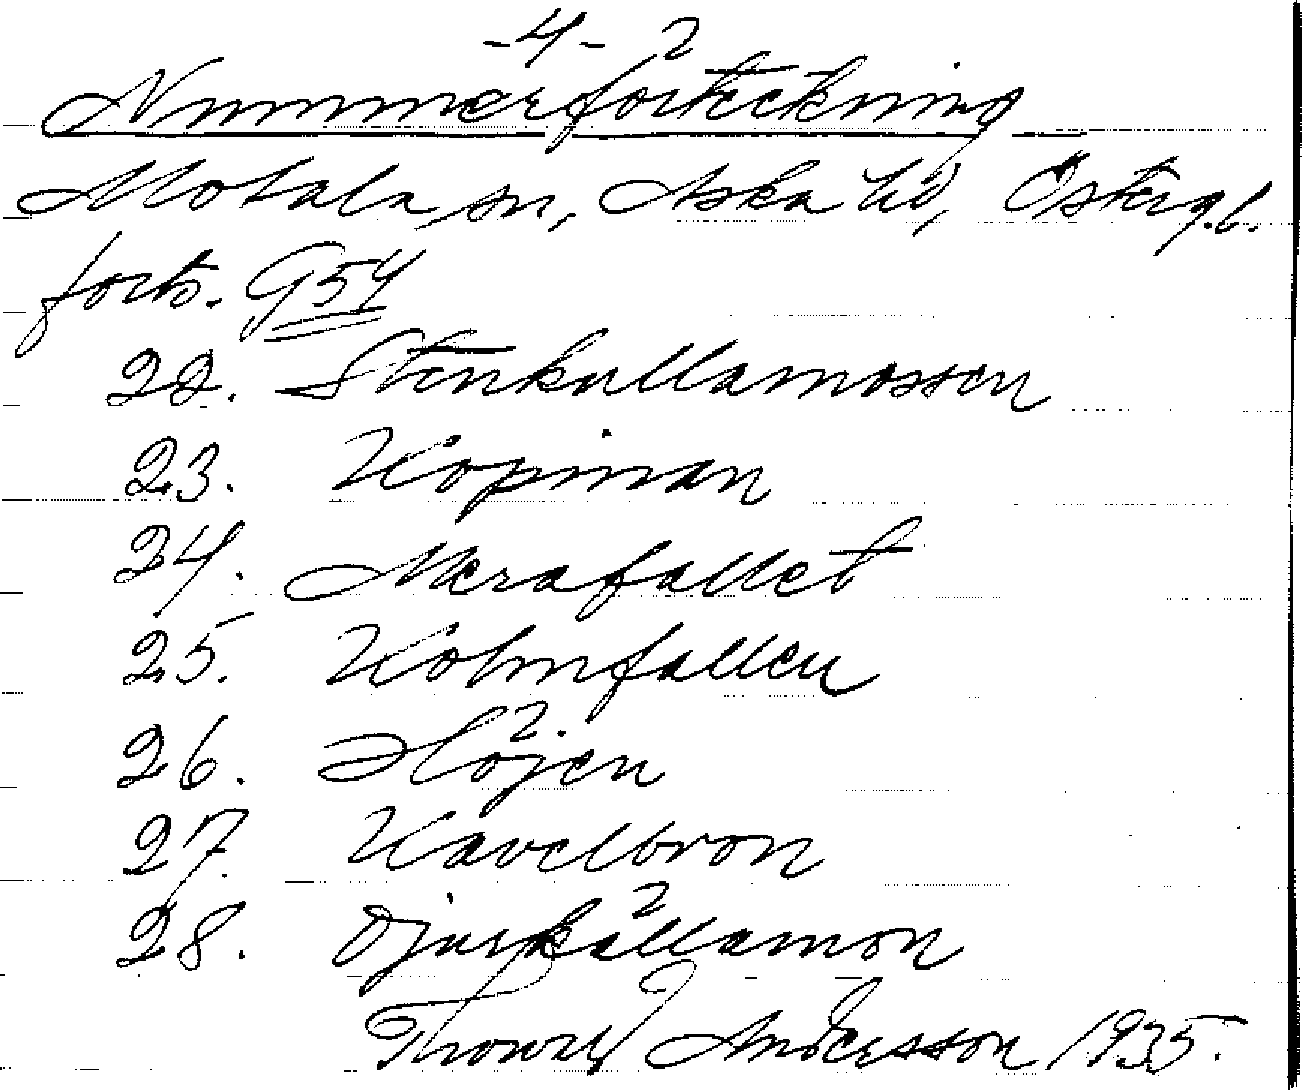 -4-
Nummerförteckning
Motala sn, Aska hd, Östergl.
forts. G54
22. Stenkullamossen
23. Kopman
24. Merafallet
25. Kolmfallen
26. Höjen
27. Kavelbron
28. Djurkällamon
Thorvald Andersson 1935.